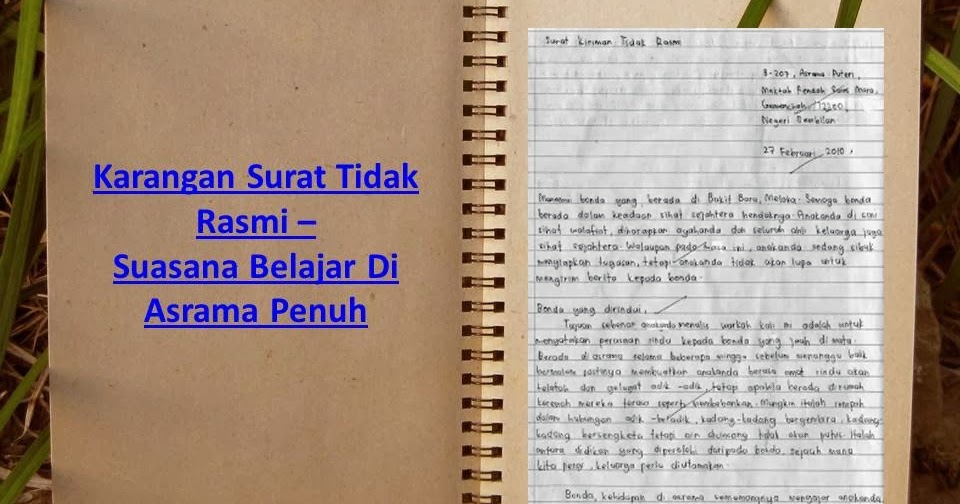 Karangan Surat Tidak
Rasmi –
Suasana Belajar Di
Asrama Penuh
Surat Kiriman Tidak Rasmi
B-207, Asrama Puteri,
Maktab Rendah Sains Mara,
72200
Negeri Sembilan
27 Februari 2010,
bonda yang berada di Bukit Baru, Melaka. Semoga bonda
berada dalam keadaan sihat sejahtera hendaknya. Anakanda di sini
sihat walafiat, diharapkan ayahanda dan seluruh ahli keluarga juga
sihat sejahtera. Walaupun pada masa ini, anakanda sedang sibuk
menyiapkan tugasan, tetapi anakanda tidak akan lupa untuk
mengirim berita kepada bonda.
Bonda yang dirindui,
Tujuan sebenar anakanda menulis warkah kali ini adalah untuk
menyatakan perasaan rindu kepada bonda yang jauh di mata.
Berada di asrama selama beberapa minggu sebelum menunggu balik
bermalam pastinya membuatkan anakanda berasa amat rindu akan
telatah dan gelagat adik-adik, tetapi apabila berada dirumah
kerenah mereka terasa seperti membebankan. Mungkin itulah rempah
dalam hubungan adik-beradik, kadang-kadang bergembira, kadang-
kadang bersengketa tetapi air dicincang tidak akan putus. Itulah
antara didikan yang diperolehi daripada bonda, sejauh mana
kita pergi, keluarga perlu diutamakan.
Bonda, kehidupan di asrama sememangnya mengajar anakanda